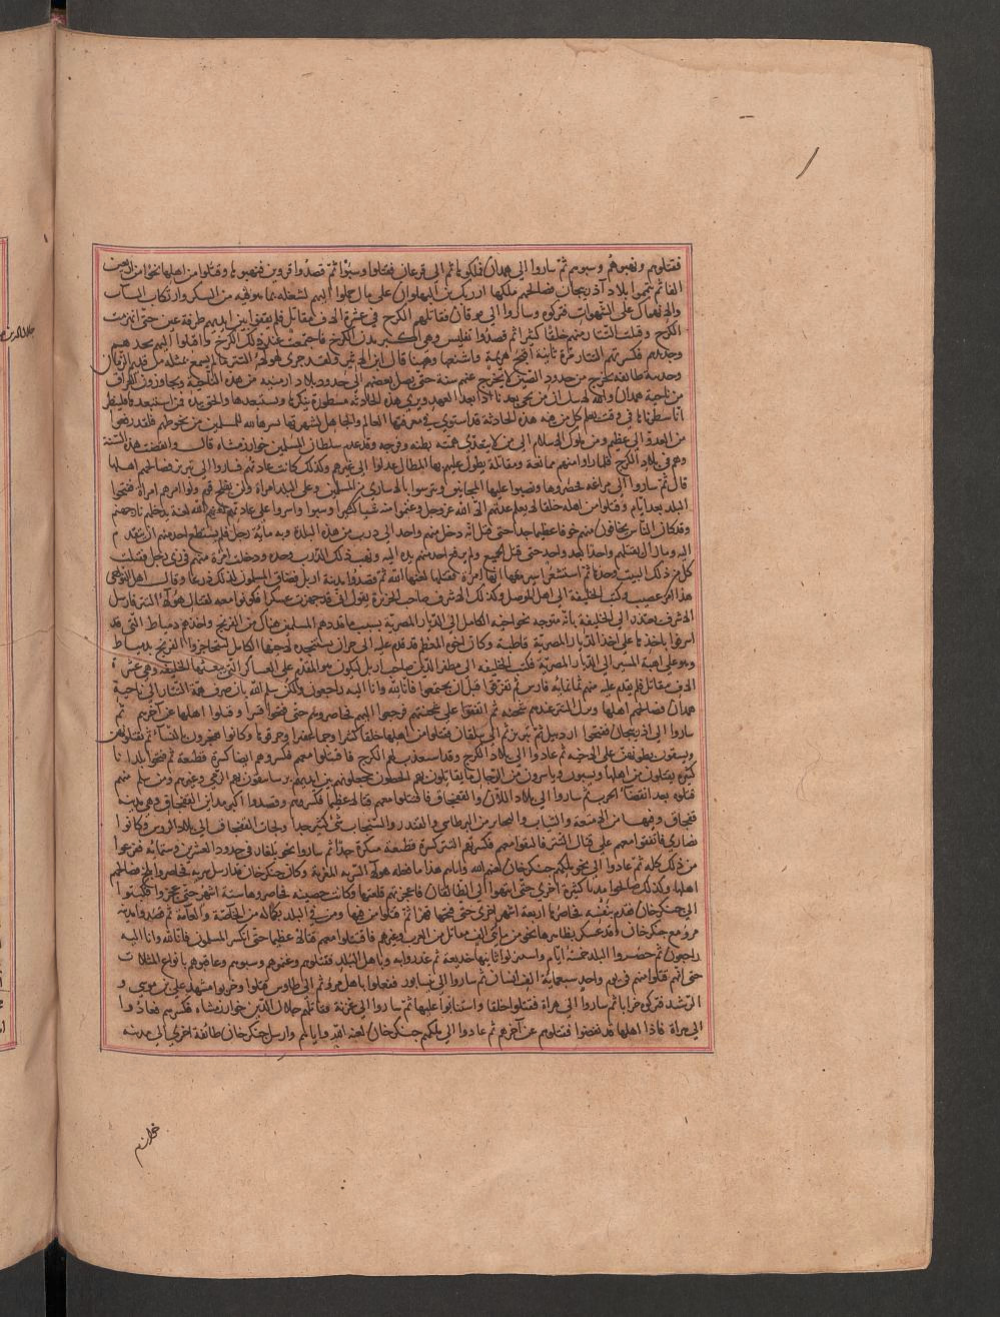 فقتلوهم ونهبوهم وسبوهم ثم ساروا الي همدان فملكوها ثم الي فقتلوا وسبوا ثم قصدوا قزوين فنهبوها وقتلوا من اهلها نحوا من اربعين
الفا ثم تيمموا بلاد آذربيجان فصالحهم ملكها ازبك بن البهلوان علي مال حملوا اليهم لشغله بما هو فيه من السكر وارتكاب السيات
والانهماك علي الشهوات فتركوه وساروا الي موقان فقاتلهم الكرج في عشرة الاف مقاتل فلم يقفوا بين ايديهم طرفة عين حتي انهزمت
الكرج وقتلت التتار منهم خلقا كثيرا ثم قصدوا تفليس وهي اكبر مدن الكرج فاجتمعت عند ذلك الكرج واقبلوا اليهم بحدهم
وحديدهم فكسرتهم التتار مرة ثانية اقبح هزيمة واشنعها وههنا قال ابن الاثير ولقد جري لهولاء التتر ما لم يسمع بمثله من قديم الزمان
وحديثه طائفة تخرج من حدود الصين لا تنقضي عنهم سنة حتي يصل بعضهم الي حدود بلاد ارمينية من هذه الناحية ويجاوزون العراق
من ناحية همدان والله لا شك ان من يجي بعدنا اذا بعد العهد ويري هذه الحادثة مسطورة ينكرها ويستبعدها والحق بيده فمن استبعد فلينظر
انا سطرناها في وقت يعلم كل من فيه هذه الحادثة قد استوي في معرفتها العالم والجاهل لشهرتها يسر الله للمسلمين من يحوطهم فلقد دفعوا
من العدو الي عظيم ومن ملوك الاسلام الي من لا يتعدي همته بطنه وفرجه وقد عدم سلطان المسلمين خوارزمشاه قال وانقضت هذه السنة
وهم في بلاد الكرج فلما راوا منهم ممانعة ومقاتلة يطول عليهم بها المطال عدلوا الي غيرهم وكذلك كانت عادتهم فساروا الي تبريز فصالحهم اهلها
قال ثم ساروا الي مراغه فحصروها ونصبوا عليها المجانيق وتترسوا بالاساري من المسلمين وعلي البلد امراة ولن يفلح قوم ولوا امرهم امراة ففتحوا
البلد بعد ايام وقتلوا من اهله خلقا لا يعلم عدتهم الا الله عز وجل وغنموا منه شيئا كثيرا وسبوا واسروا علي عادتهم لعنهم الله لعنة يدخلهم نار جهنم
وقد كان الناس يخافون منهم خوفا عظيما جدا حتي قيل انه دخل منهم واحد الي درب من هذه البلدة وبه ماية رجل فلم يستطع احد منهم ان يتقدم
اليه وما زال يقتلهم واحدا بعد واحد حتي قتل الجميع ولم يرفع احد منهم يده اليه ونهب ذلك الدرب وحده ودخلت امراة منهم في زي رجل فقتلت
كل من في ذلك البيت وحدها ثم استشعر اسير معها انها امراة فقتلها لعنها الله ثم قصدوا مدينة اربل فضاق المسلمون لذلك ذرعا وقال اهل النواحي
هذا امر عصيب وكتب الخليفة الي اهل الموصل وكذلك الاشرف صاحب الجزيرة يقول اني قد جهزت عسكرا فكونوا معه لقتال هولاء التتر فارسل
الاشرف يعتذر الي الخليفة بانه متوجه نحو اخيه الكامل الي الديار المصرية بسبب ما قد دهم المسلمين هناك من الفرنج واخذهم دمياط التي قد
اشرفوا باخذها علي اخذ الديار المصرية قاطبة وكان اخوه المعظم قد قدم عليه الي حران يستنجده لاخيهما الكامل ليتحاجزوا الفرنج بدمياط
وهو علي اهبة المسير الي الديار المصرية فكتب الخليفة الي مظفر الدين صاحب اربل ليكون هو المقدم علي العساكر التي يبعثها الخليفة وهي عشرة
الاف مقاتل فلم يقدم عليه منهم ثمانماية فارس ثم تفرقوا قبل ان يجتمعوا فانا لله وانا اليه راجعون ولكن سلم الله بان صرف همة التتار الي ناحية
همدان فصالحهم اهلها وترك التتر عندهم شحنه ثم اتفقوا علي شحنتهم فرجعوا اليهم فحاصروهم حتي فتحوا قسرا وقتلوا اهلها عن آخرهم ثم
ساروا الي اذربيجان ففتحوا اردبيل ثم تبريز ثم الي بيلقان فقتلوا من اهلها خلقا كثيرا وجما غفيرا وحرقوها وكانوا يفجرون بالنسا ثم يقتلونهن
ويشقون بطونهن علي الاجنه ثم عادوا الي بلاد الكرج وقد استعدت لهم الكرج فاقتتلوا معهم فكسروهم ايضا كسرة فظيعة ثم فتحوا بلدانا
كثيرة يقتلون من اهلها ويسبون وياسرون من الرجال ما يقاتلون بهم الحصون يجعلونهم بين ايديهم ترسا يتقون بهم الرمي وغيره ومن سلم منهم
قتلوه بعد انقضا الحرب ثم ساروا الي بلاد اللان والقفجاق فاقتتلوا معهم قتالا عظيما فكسروهم وقصدوا اكبر مداين القفجاق وهي مدينه
وفيها من الامتعة والثياب من البرطاسي والقندر والسنجاب شي كثير جدا ولجات القفجاف الي بلاد الروس وكانوا
نصاري فاتفقوا معهم علي قتال التتر فالتقوا معهم فكسرتهم التتر كسرة فظيعة منكرة جدا ثم ساروا نحو بلغار في حدود العشرين وستمائة ففرغوا
من ذلك كله ثم عادوا الي نحو ملكهم جنكزخان لعنه الله واياهم هذا ما فعله هولاء السرية المغربة وكان جنكزخان قد ارسل سرية فحاصروا بلخ فصالحهم
اهلها وكذلك صالحوا مدنا كثيرة اخري حتي انتهوا الي الطالقان فاعجزتهم قلعتها وكانت حصينه فحاصروها ستة اشهر حتي عجزوا فكتبوا
الي جنكزخان فقدم بنفسه فحاصرها اربعة اشهر اخري حتي فتحها قهرا ثم قتلوا من فيها ومن في البلد بكماله من الخاصة والعامة ثم قصدوا مدينة
مرو مع جنكزخان وقد عسكر بظاهرها نحو من مايتي الف مقاتل من العرب وغيرهم فاقتتلوا معهم قتالا عظيما حتي انكسر المسلمون فانا لله وانا اليه
راجعون ثم حصروا البلد خمسة ايام واستنزلوا نائبها خديعة ثم غدروا به وباهل البلد فقتلوهم وغنموهم وسبوهم وعاقبوهم بانواع المثلات
حتي انهم قتلوا منهم في يوم واحد سبعماية الف انسان ثم ساروا الي نيسابور ففعلوا باهل مرو ثم الي طوس فقتلوا وخربوا مشهد علي بن موسي و
الرشيد فتركوه خرابا ثم ساروا الي هراة فقتلوا خلقا واستنابوا عليها ثم ساروا الي غزنة وقاتلهم جلال الدين خوارزمشاه فكسرهم فعادوا
الي هراة فاذا اهلها قد نقضوا فقتلوهم عن آخرهم ثم عادوا الي ملكهم جنكزخان لعنه الله واياهم وارسل جنكزخان طائفة اخري الي مدينه
خوارزم